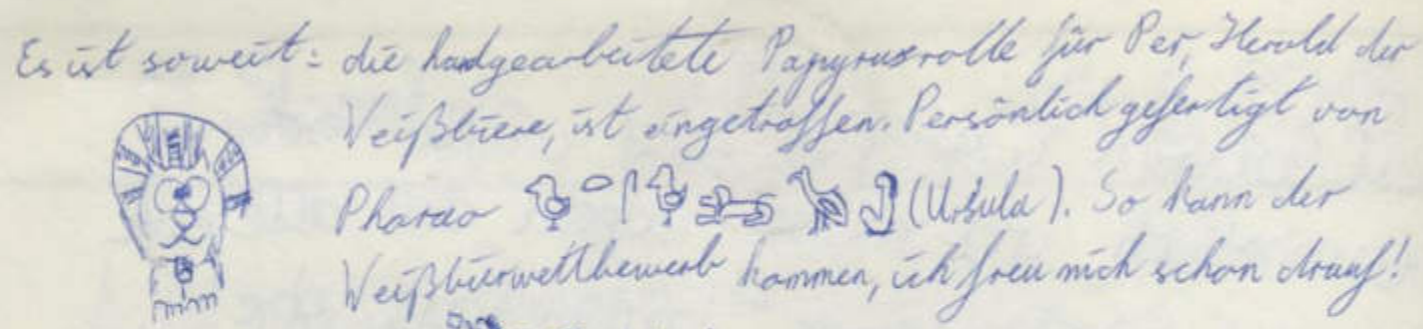 Es ist soweit: die handgearbeitete Papyrusrolle für Per, Herold der
Weißbiere, ist eingetroffen. Persönlich gefertigt von
Pharao (Ursula). So kann der
Weißbierwettbewerb kommen, ich freu mich schon drauf!